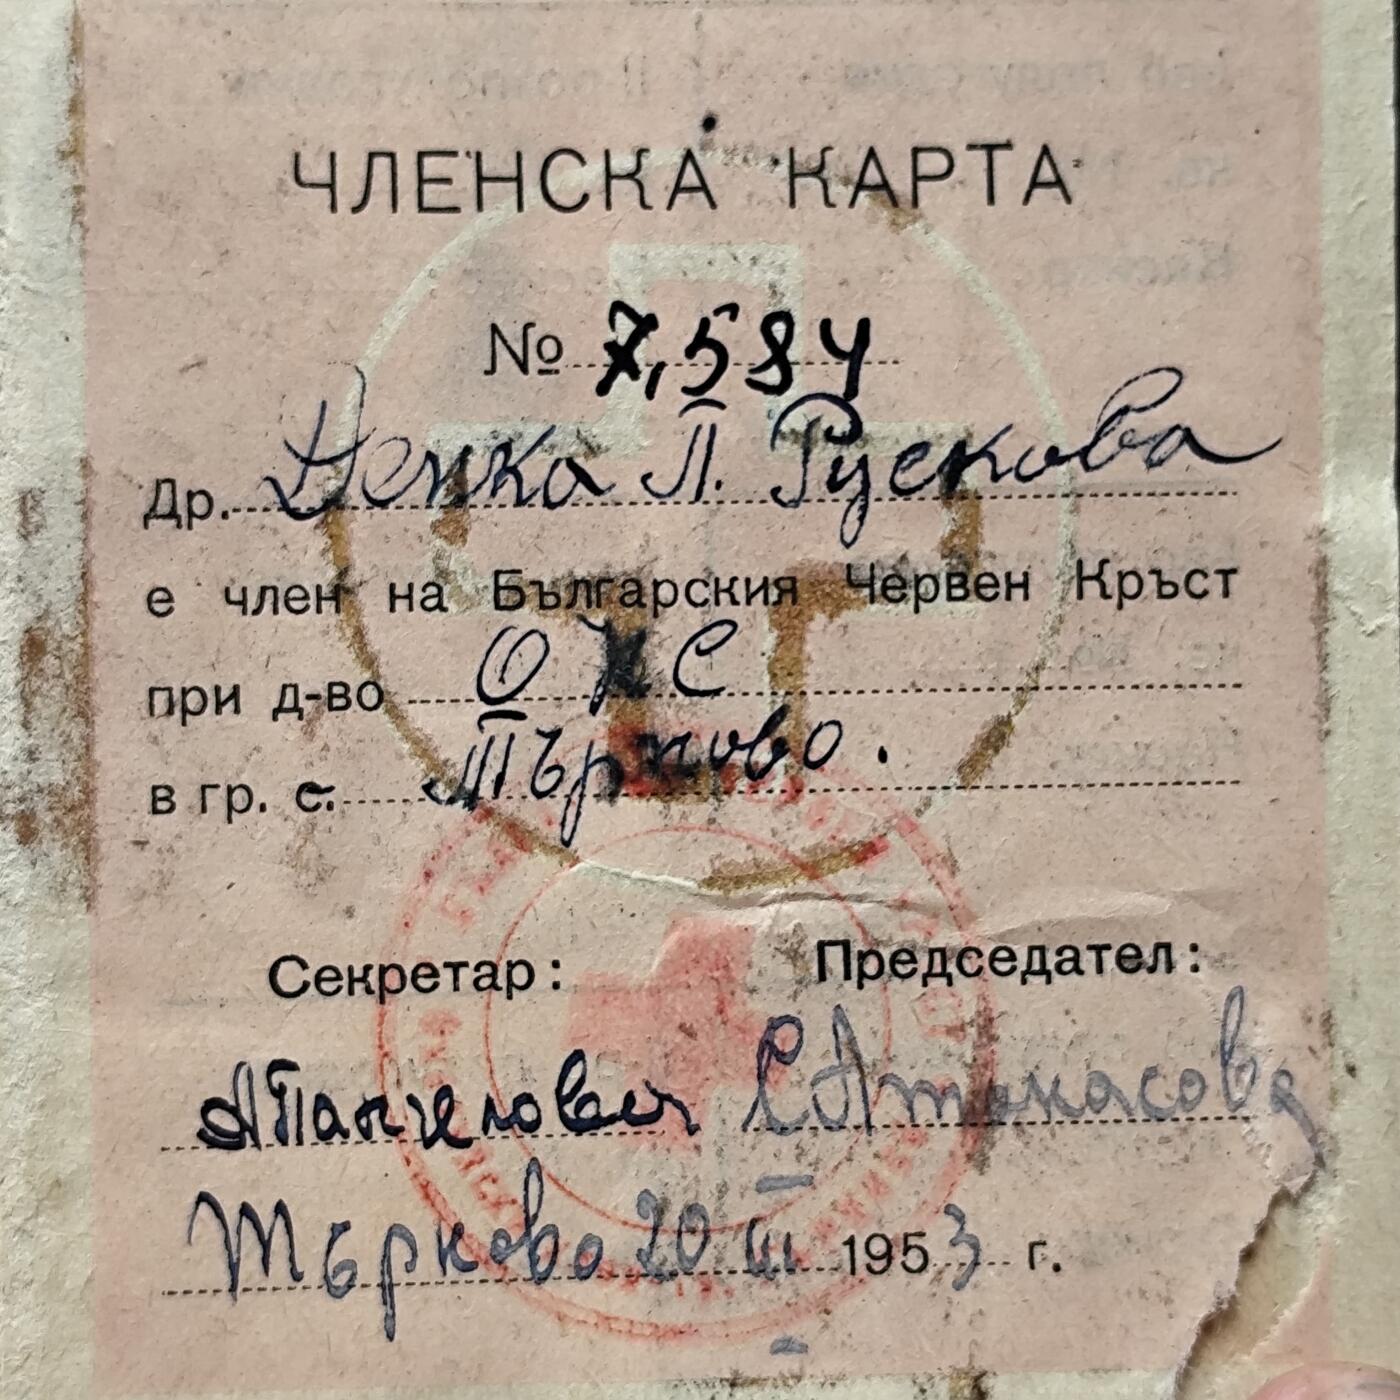 ЧЛЕНСКА КАРТА
№ 7,584
Др. Ненка П. Рускова
е член на Българския Червен Кръст
при д-во О Н С
в гр. с. Търново.
Секретар: Председател:
АПангелова САтанасова
Търново 20 III 1953 г.